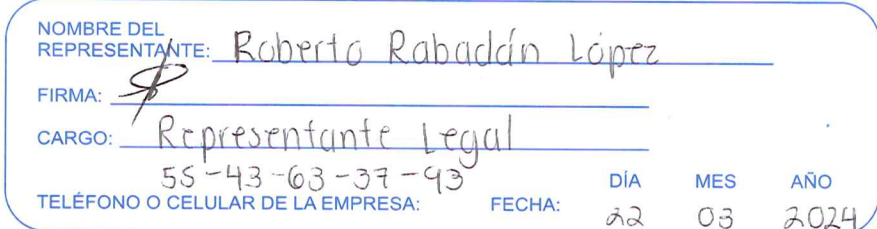 NOMBRE DEL
REPRESENTANTE: Roberto Rabadán López
FIRMA:
CARGO: Representante Legal
55-43-63-37-93
DÍA MES AÑO
TELÉFONO O CELULAR DE LA EMPRESA: FECHA: 22 03 2024